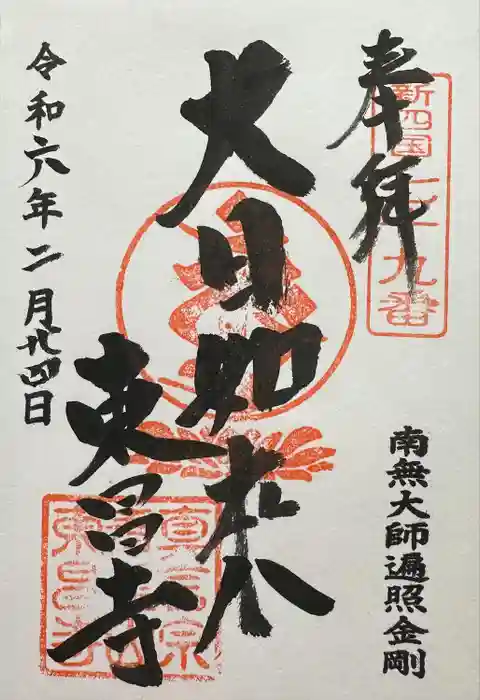 奉拝
新四国 九番
大日如来
東昌寺
令和六年二月廿四日
南無大師遍照金剛
真言宗
東昌寺